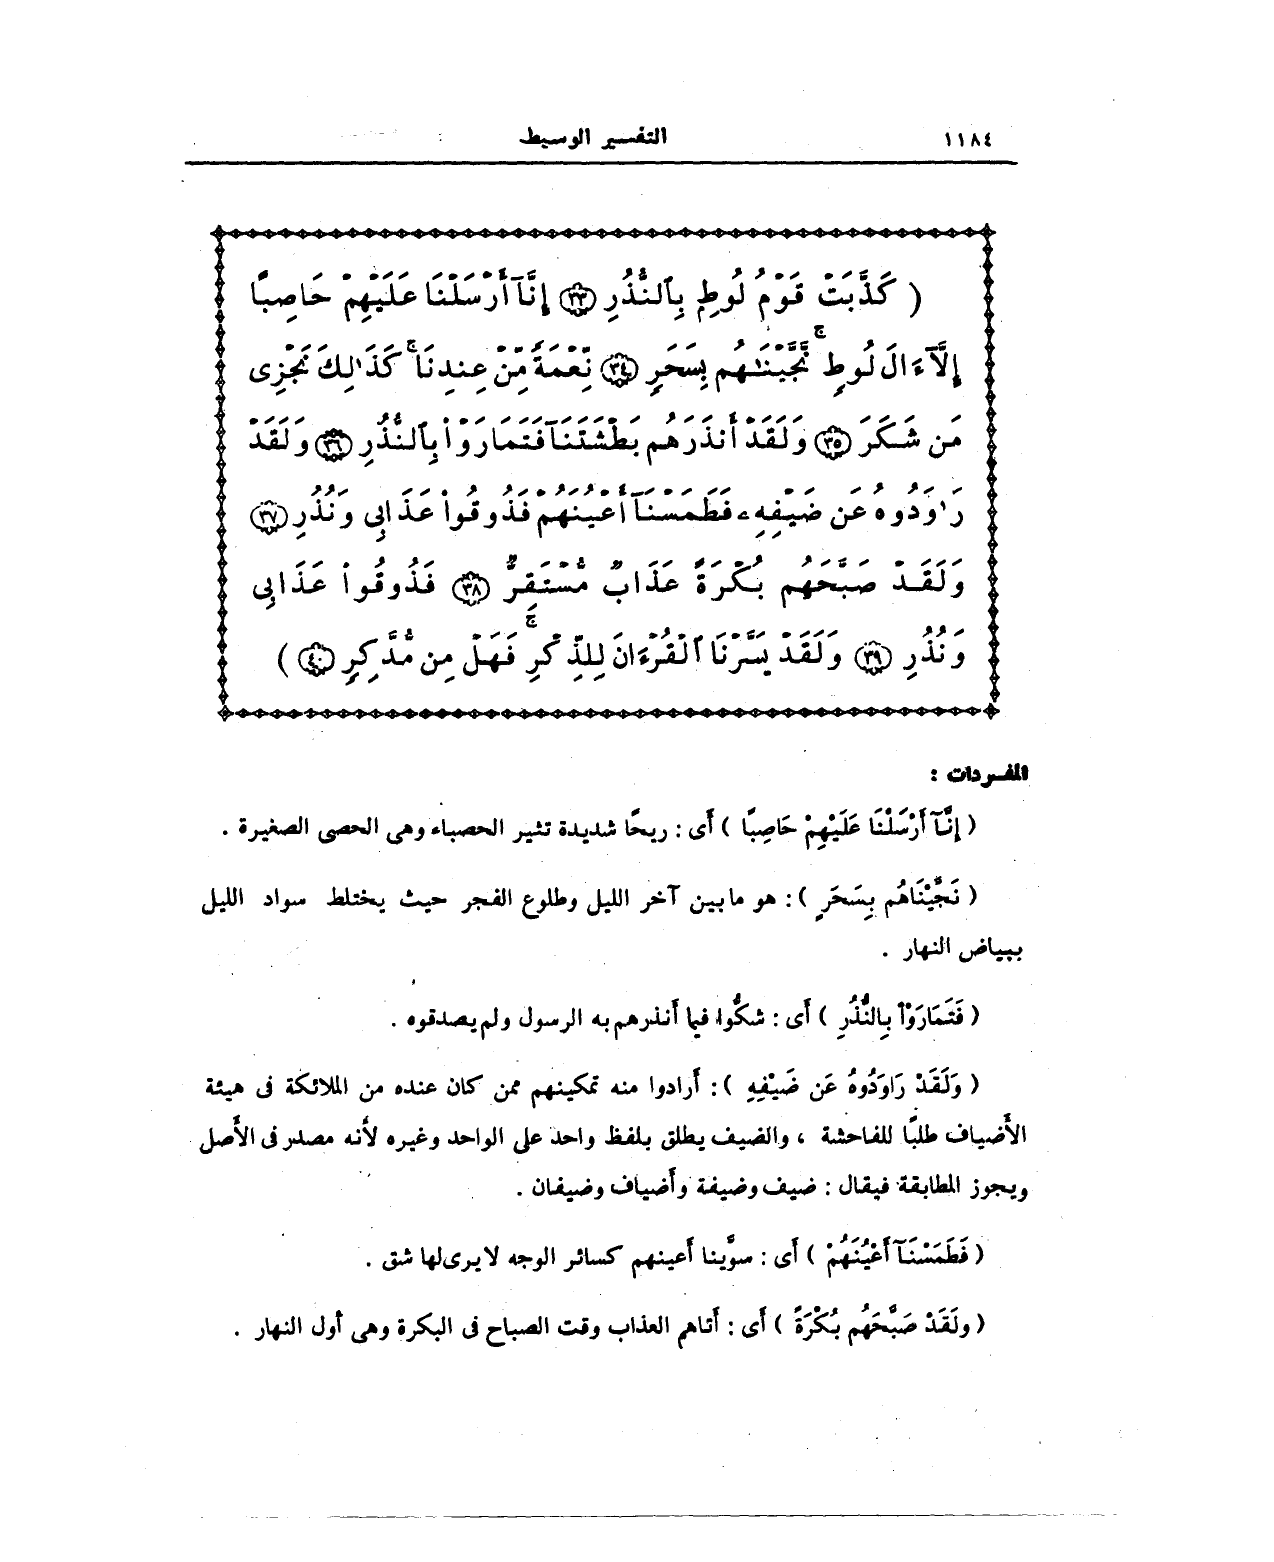 ١١٨٤ التفسير الوسيط
( كَذَّبَتْ قَوْمُ لُوطِۭ بِٱلنُّذُرِ ٣٣ إِنَّآ أَرْسَلْنَا عَلَيْهِمْ حَاصِبًا
إِلَّآ ءَالَ لُوطٍ ۖ نَّجَّيْنَٰهُم بِسَحَرٍ ٣٤ نِّعْمَةً مِّنْ عِندِنَا ۚ كَذَٰلِكَ نَجْزِى
مَن شَكَرَ ٣٥ وَلَقَدْ أَنذَرَهُم بَطْشَتَنَا فَتَمَارَوْا۟ بِٱلنُّذُرِ ٣٦ وَلَقَدْ
رَٰوَدُوهُ عَن ضَيْفِهِۦ فَطَمَسْنَآ أَعْيُنَهُمْ فَذُوقُوا۟ عَذَابِى وَنُذُرِ ٣٧
وَلَقَدْ صَبَّحَهُم بُكْرَةً عَذَابٌ مُّسْتَقِرٌّ ٣٨ فَذُوقُوا۟ عَذَابِى
وَنُذُرِ ٣٩ وَلَقَدْ يَسَّرْنَا ٱلْقُرْءَانَ لِلذِّكْرِ ۚ فَهَلْ مِن مُّدَّكِرٍ ٤٠ )
المفردات :
( إِنَّآ أَرْسَلْنَا عَلَيْهِمْ حَاصِبًا ) أَى : ريحًا شديدة تثير الحصباء وهى الحصى الصغيرة .
( نَجَّيْنَاهُم بِسَحَرٍ ) : هو ما بين آخر الليل وطلوع الفجر حيث يختلط سواد الليل
ببياض النهار .
( فَتَمَارَوْا۟ بِالنُّذُرِ ) أَى : شكُّوا فيما أَنذرهم به الرسول ولم يصدقوه .
( وَلَقَدْ رَاوَدُوهُ عَن ضَيْفِهِ ) : أَرادوا منه تمكينهم ممن كان عنده من الملائكة فى هيئة
الأَضياف طلبًا للفاحشة ، والضيف يطلق بلفظ واحد على الواحد وغيره لأَنه مصدر فى الأَصل
ويجوز المطابقة فيقال : ضيف وضيفة وأَضياف وضيفان .
( فَطَمَسْنَآ أَعْيُنَهُمْ ) أَى : سوَّينا أَعينهم كسائر الوجه لا يرى لها شق .
( ولَقَدْ صَبَّحَهُم بُكْرَةً ) أَى : أَتاهم العذاب وقت الصباح فى البكرة وهى أول النهار .